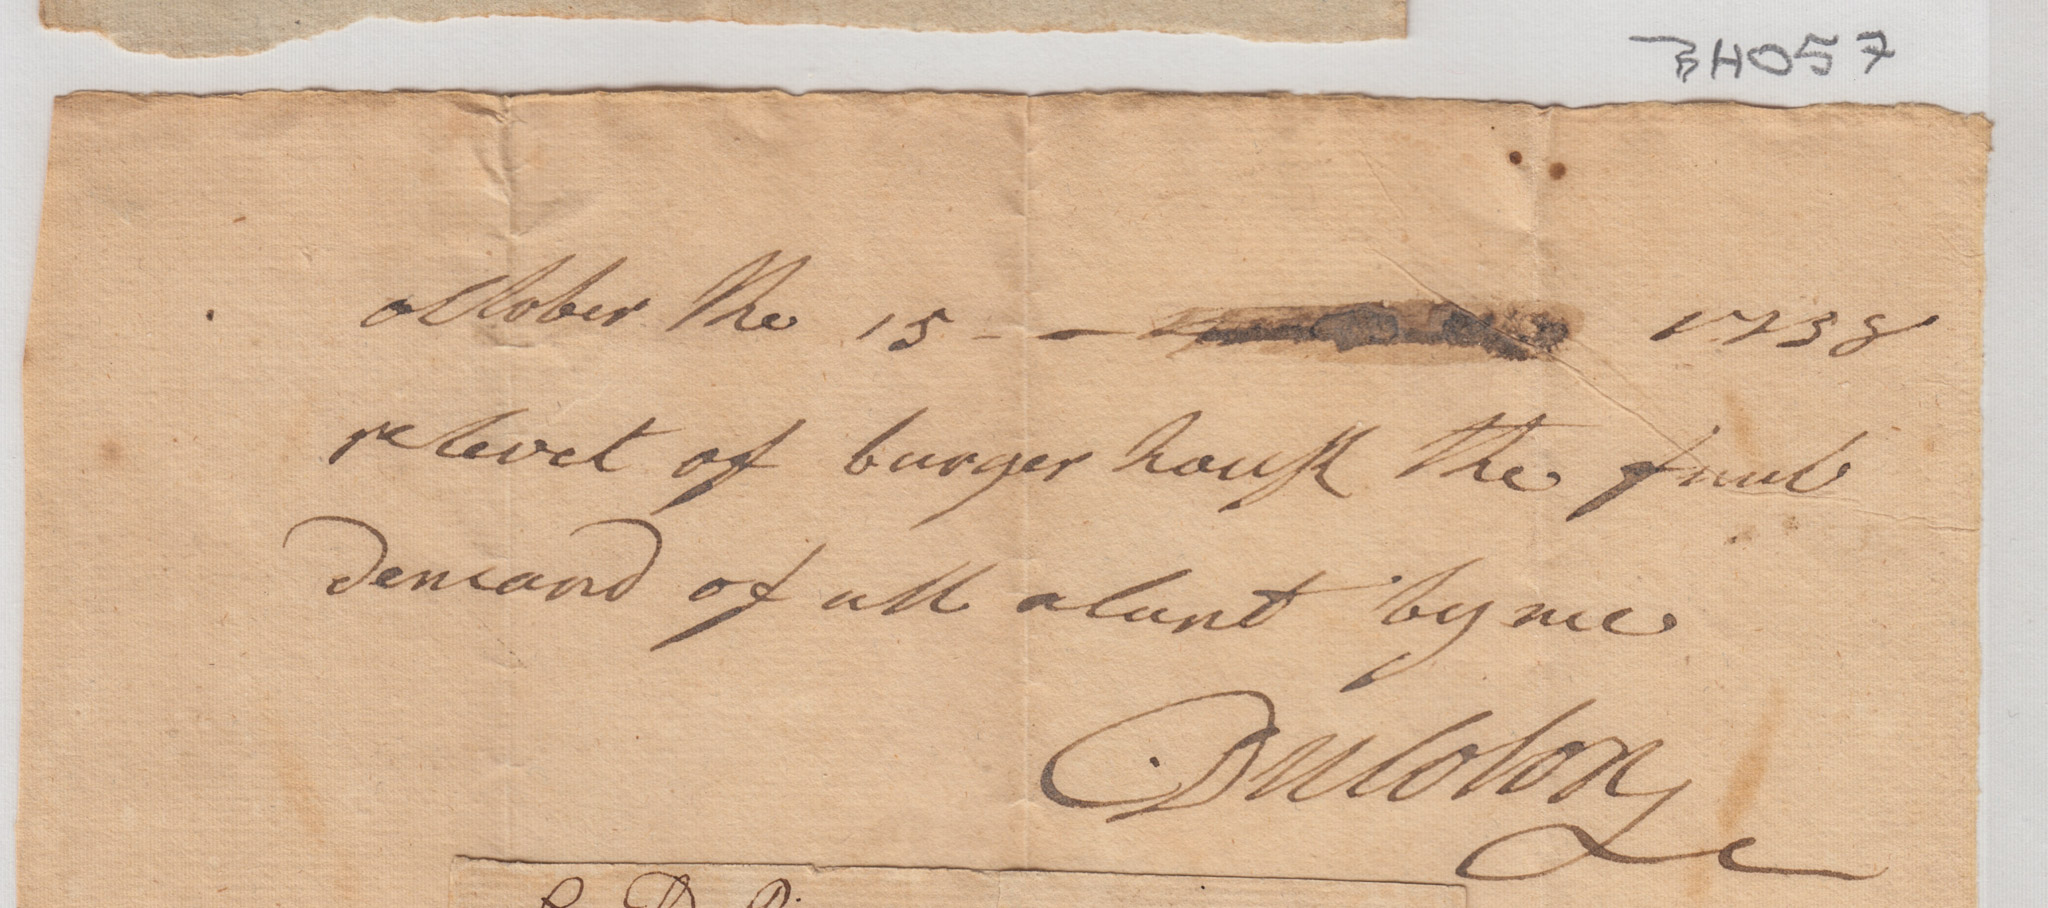 BH057
october the 15 - - 1738
recevet of burger house the full
Demand of all acunt by me